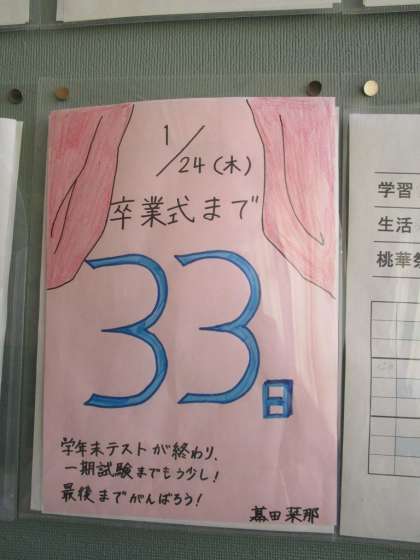 1/24(木)
卒業式まで
33日
学年末テストが終わり、
一期試験までもう少し!
最後までがんばろう!
学習
生活
桃華祭